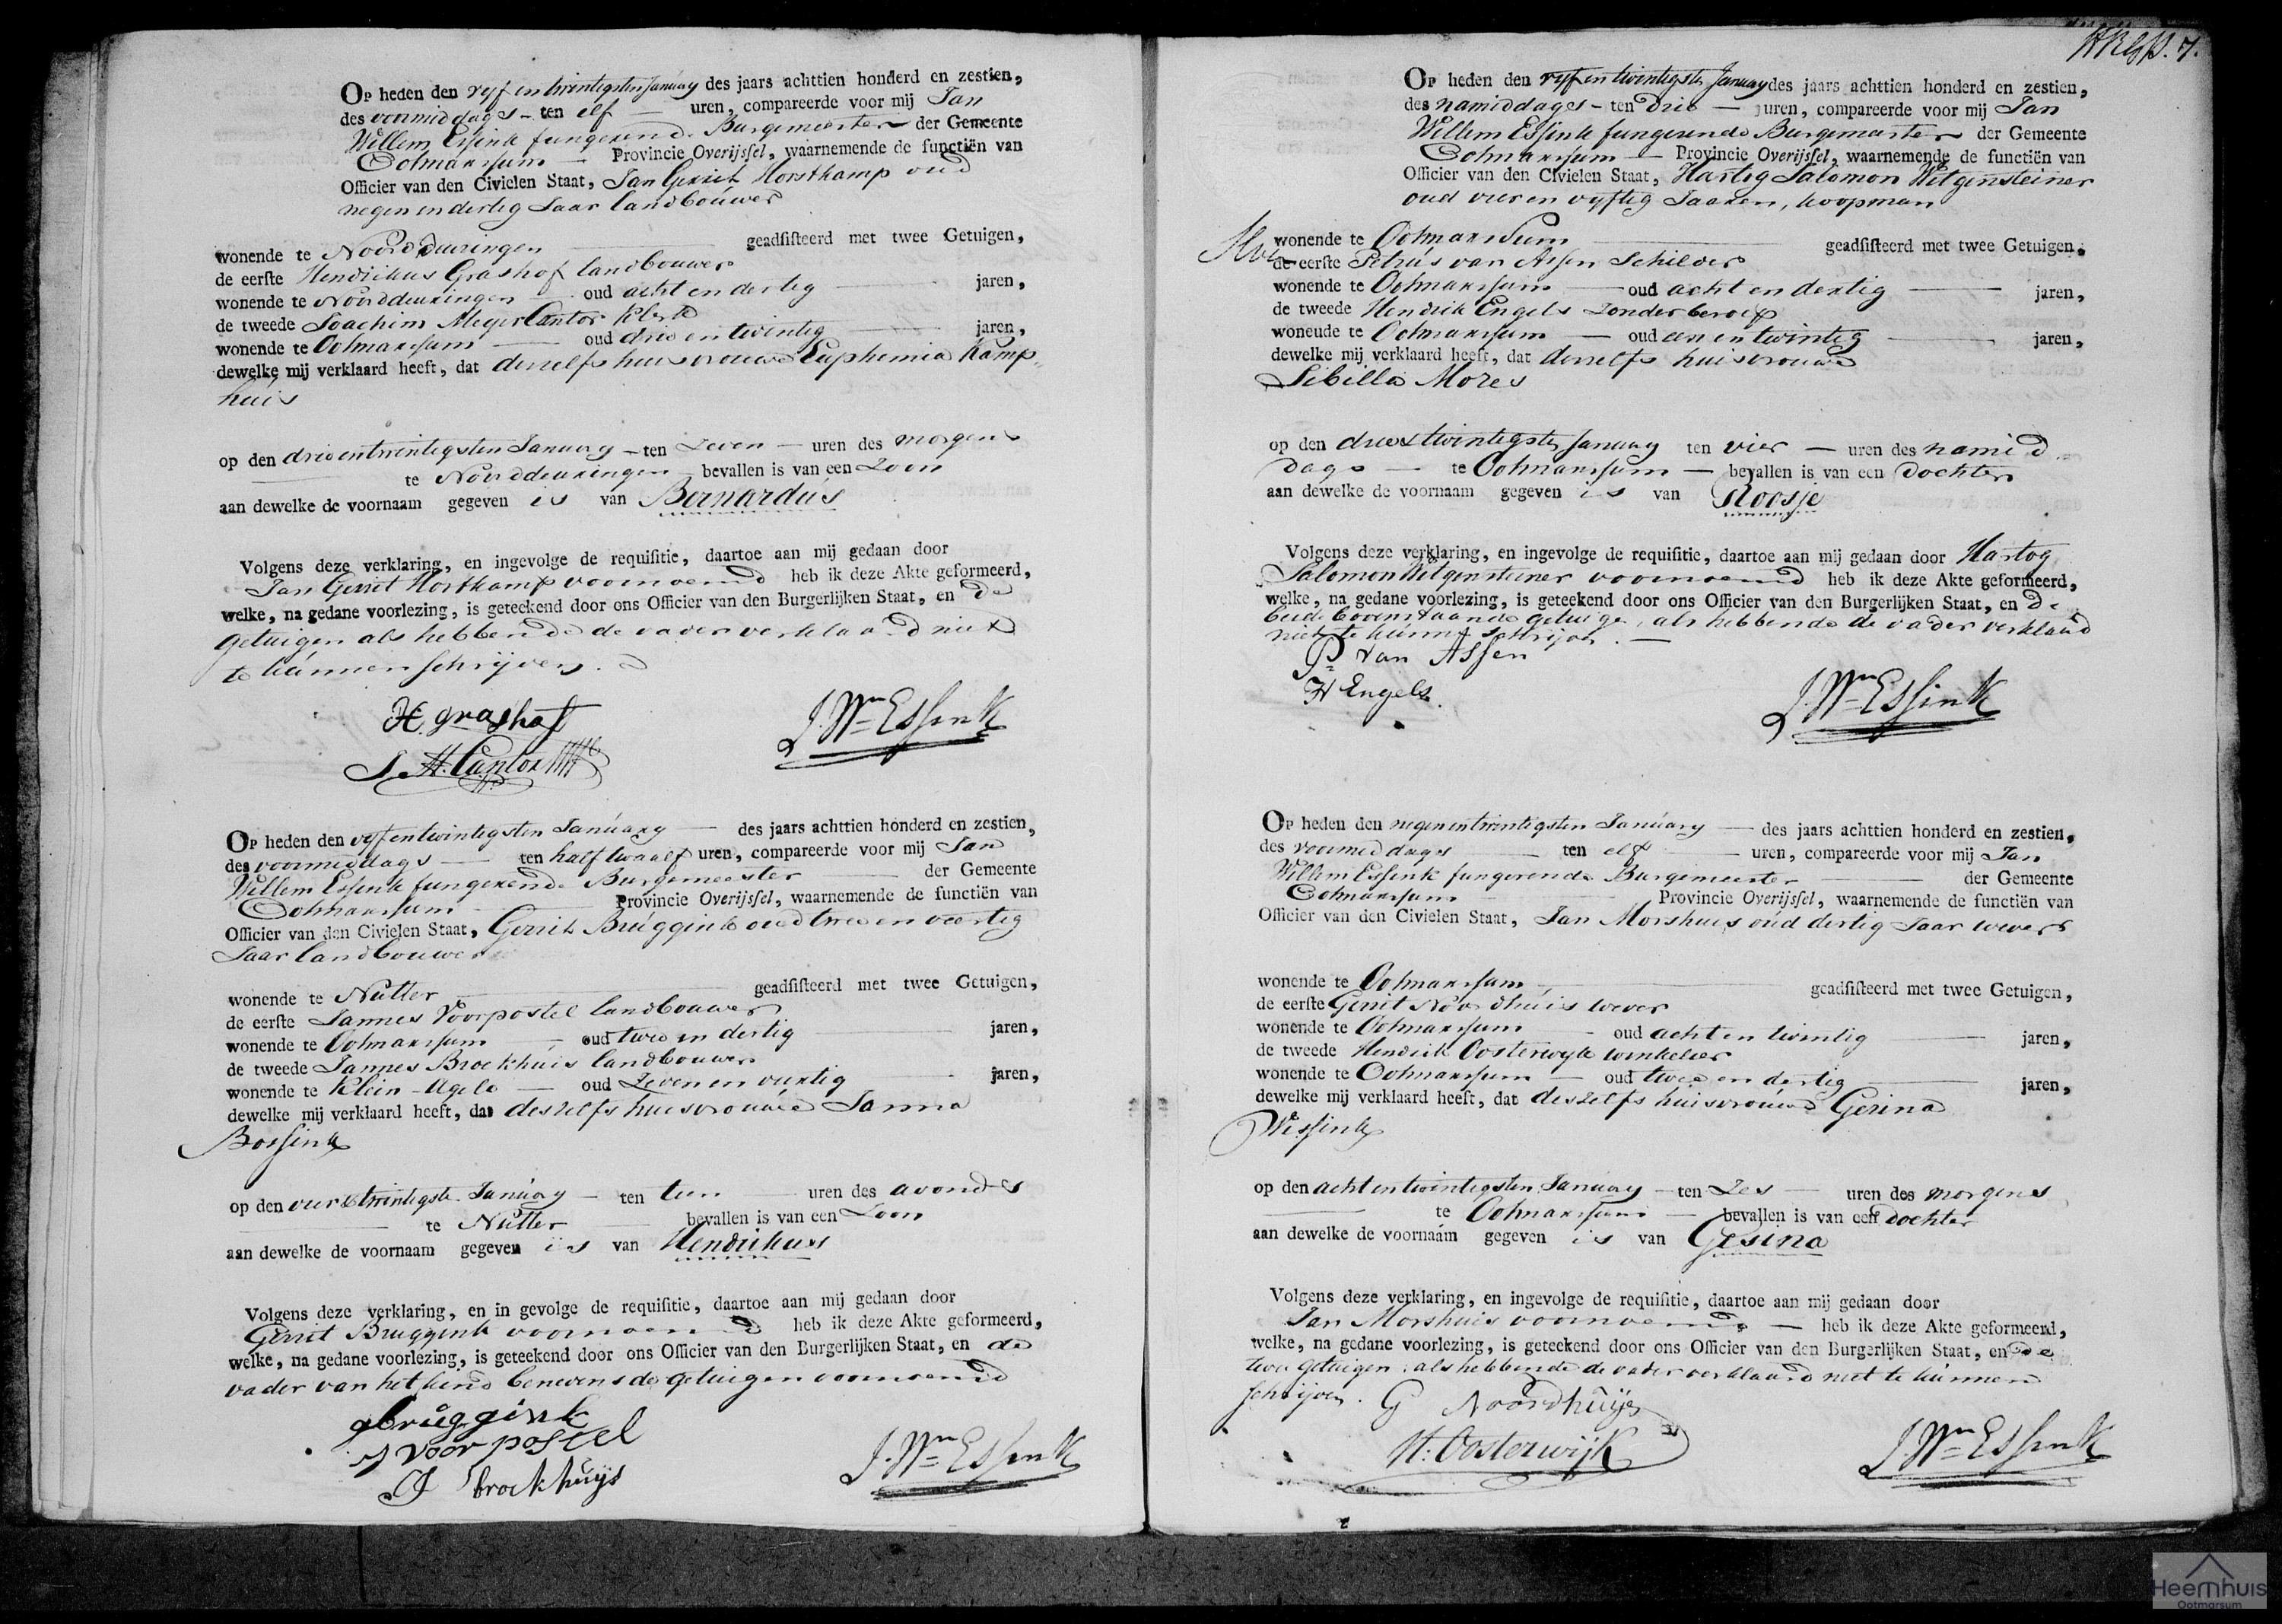 Op heden den vyf en twintigsten January des jaars achttien honderd en zestien,
des voormiddags - ten elf uren, compareerde voor mij Jan
Willem Essink fungerende Burgemeester der Gemeente
Ootmarssum Provincie Overijssel, waarnemende de functiën van
Officier van den Civielen Staat, Jan Gerrit Horstkamp oud
negen en dertig Jaar landbouwer
wonende te Noorddeuringen geadsisteerd met twee Getuigen,
de eerste Hendrikus Grashof landbouwer
wonende te Noorddeuringen oud acht en dertig jaren,
de tweede Joachim Meyer Cantor klerk
wonende te Ootmarssum oud drie en twintig jaren,
dewelke mij verklaard heeft, dat deszelfs huisvrouwe Euphemia Kamp-
huis
op den drie en twintigsten January - ten Zeven - uren des morgens
te Noorddeuringen bevallen is van een Zoon
aan dewelke de voornaam gegeven is van Bernardus
Volgens deze verklaring, en ingevolge de requisitie, daartoe aan mij gedaan door
Jan Gerrit Hortkamp voornoemd heb ik deze Akte geformeerd,
welke, na gedane voorlezing, is geteekend door ons Officier van den Burgerlijken Staat, en de
getuigen als hebbende de vader verklaard niet
te kunnen schrijven.
H. grashof
J. Wm Essink
J. M. Cantor
Op heden den vyf en twintigsten January des jaars achttien honderd en zestien,
des voormiddags ten half twaalf uren, compareerde voor mij Jan
Willem Essink fungerende Burgemeester der Gemeente
Ootmarssum Provincie Overijssel, waarnemende de functiën van
Officier van den Civielen Staat, Gerrit Bruggink oud twee en veertig
Jaar landbouwer
wonende te Nutter geadsisteerd met twee Getuigen,
de eerste Jannes Voorpostel landbouwer
wonende te Ootmarssum oud twee en dertig jaren,
de tweede Jannes Broekhuis landbouwer
wonende te Klein-Agelo oud Zeven en veertig jaren,
dewelke mij verklaard heeft, dat deszelfs huisvrouwe Janna
Bossink
op den vier & twintigste January - ten tien uren des avonds
te Nutter bevallen is van een Zoon
aan dewelke de voornaam gegeven is van Hendrikus
Volgens deze verklaring, en in gevolge de requisitie, daartoe aan mij gedaan door
Gerrit Bruggink voornoemd heb ik deze Akte geformeerd,
welke, na gedane voorlezing, is geteekend door ons Officier van den Burgerlijken Staat, en de
vader van het kind benevens de getuigen voornoemd
gbruggink
J voorpostel
J. Wm Essink
J brockhuijs
7.
Op heden den vyf en twintigste January des jaars achttien honderd en zestien,
des namiddags - ten drie uren, compareerde voor mij Jan
Willem Essink fungerende Burgemeester der Gemeente
Ootmarssum Provincie Overijssel, waarnemende de functiën van
Officier van den Civielen Staat, Hartog Salomon Witgensteiner
oud vier en vyftig Jaaren, koopman
wonende te Ootmarssum geadsisteerd met twee Getuigen,
de eerste Petrus van Assen Schilder
wonende te Ootmarssum oud acht en dertig jaren,
de tweede Hendrik Engels Zonder beroep
woneude te Ootmarssum oud een en twintig jaren,
dewelke mij verklaard heeft, dat deszelfs huisvrouwe
Sibilla Mozes
op den drie & twintigste January ten vier uren des namid-
dags te Ootmarssum bevallen is van een dochter
aan dewelke de voornaam gegeven is van Roosje
Volgens deze verklaring, en ingevolge de requisitie, daartoe aan mij gedaan door Hartog
Salomon Witgensteiner voornoemd heb ik deze Akte geformeerd,
welke, na gedane voorlezing, is geteekend door ons Officier van den Burgerlijken Staat, en de
beide bovenstaande getuige, als hebbende de vader verklaard
niet te kunnen schrijven.
P van Assen
H Engels.
J. Wm Essink
Op heden den negen en twintigsten January des jaars achttien honderd en zestien,
des voormiddags ten elf uren, compareerde voor mij Jan
Willem Essink fungerende Burgemeester der Gemeente
Ootmarssum Provincie Overijssel, waarnemende de functiën van
Officier van den Civielen Staat, Jan Morshuis oud dertig Jaar wever
wonende te Ootmarssum geadsisteerd met twee Getuigen,
de eerste Gerrit Noordhuis wever
wonende te Ootmarssum oud acht en twintig jaren,
de tweede Hendrik Oosterwyk winkelier
wonende te Ootmarssum oud twee en dertig jaren,
dewelke mij verklaard heeft, dat deszelfs huisvrouwe Gerina
Wissink
op den acht en twintigsten January - ten Zes uren des morgens
te Ootmarssum bevallen is van een dochter
aan dewelke de voornaam gegeven is van Gesina
Volgens deze verklaring, en ingevolge de requisitie, daartoe aan mij gedaan door
Jan Morshuis voornoemd heb ik deze Akte geformeerd,
welke, na gedane voorlezing, is geteekend door ons Officier van den Burgerlijken Staat, en de
twee getuigen, als hebbende de vader verklaard niet te kunnen
schrijven. G Noordhuijs
H. Oosterwijk
J. Wm Essink
Heemhuis
Ootmarsum